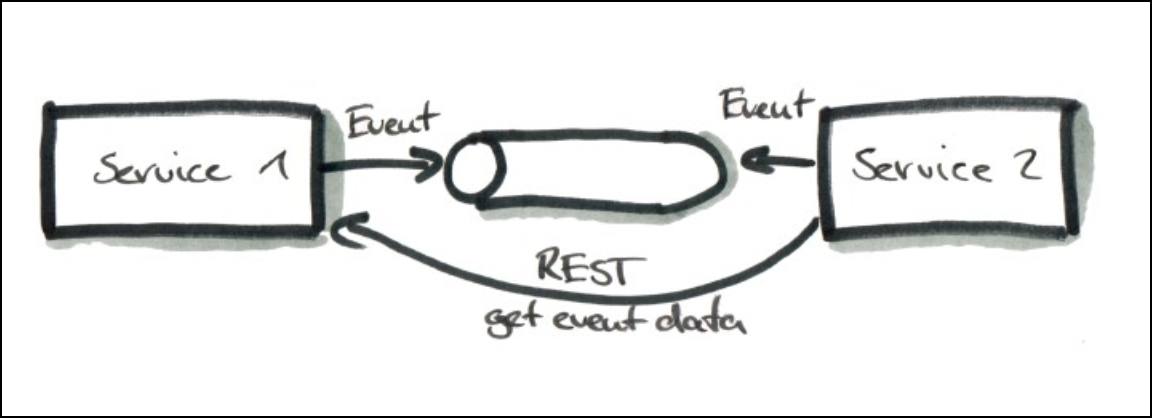 Service 1
Event
Event
Service 2
REST
get event data